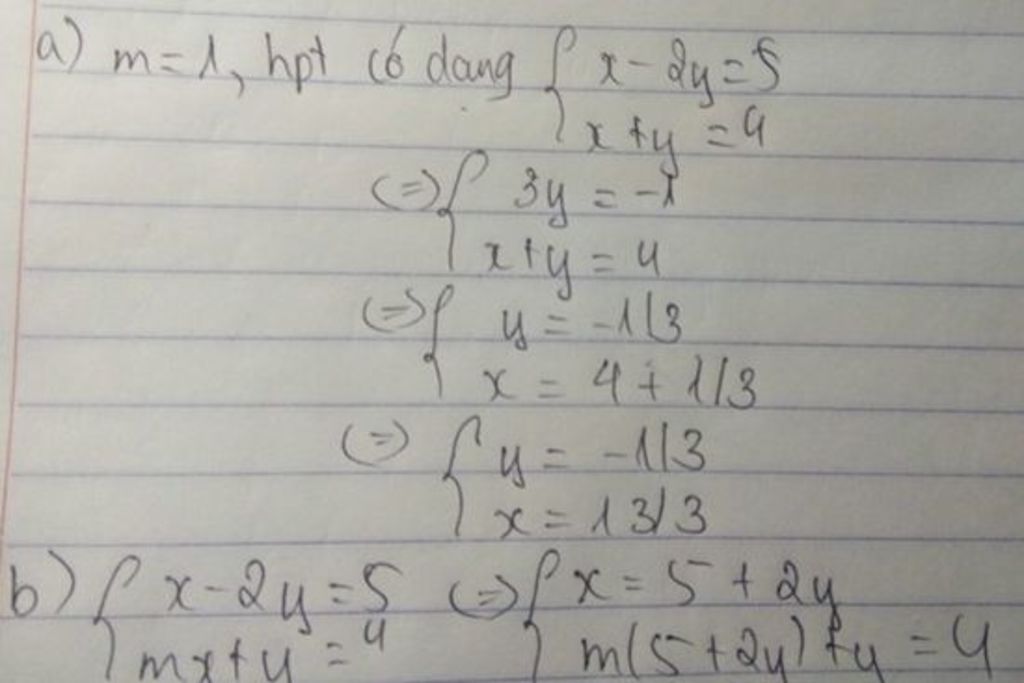 a) m=1, hpt có dạng { x - 2y = 5
x + y = 4
(=) { 3y = -1
x + y = 4
(=) { y = -1/3
x = 4 + 1/3
(=) { y = -1/3
x = 13/3
b) { x - 2y = 5 (=) { x = 5 + 2y
mx + y = 4 m(5 + 2y) + y = 4